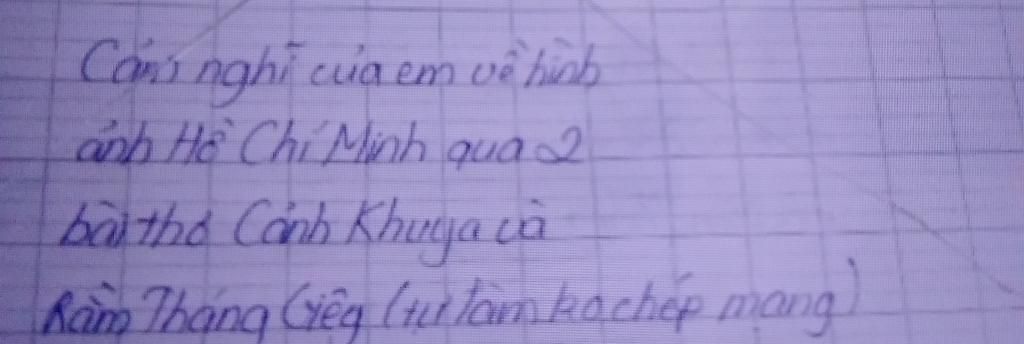 Cảm nghĩ của em về hình
ảnh Hồ Chí Minh qua 2
bài thơ Cảnh Khuya và
Rằm Tháng Giêg (tự làm ko chép mạng)